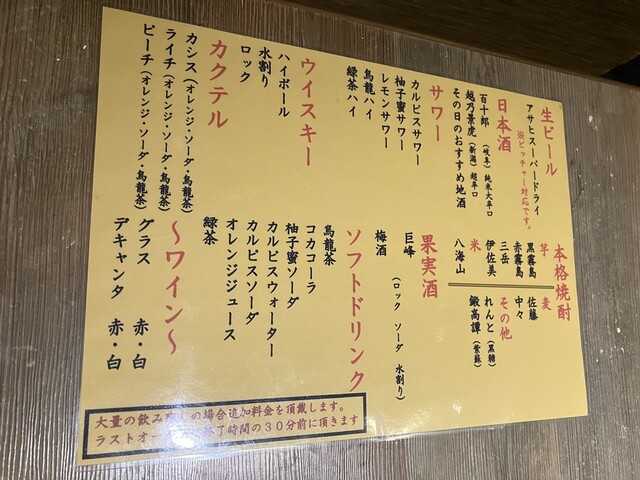 生ビール
アサヒスーパードライ
※ピッチャー対応です。
日本酒
百十郎 (岐阜) 純米大辛口
越乃景虎 (新潟) 超辛口
その日のおすすめ地酒
サワー
カルピスサワー
柚子蜜サワー
レモンサワー
烏龍ハイ
緑茶ハイ
ウイスキー
ハイボール
水割り
ロック
カクテル
カシス (オレンジ・ソーダ・烏龍茶)
ライチ (オレンジ・ソーダ・烏龍茶)
ピーチ (オレンジ・ソーダ・烏龍茶)
本格焼酎
芋
黒霧島
赤霧島
三岳
伊佐美
米
八海山
麦
佐藤
中々
その他
れんと (黒糖)
鍛高譚 (紫蘇)
果実酒
巨峰
(ロック ソーダ 水割り)
梅酒
ソフトドリンク
烏龍茶
コカコーラ
柚子蜜ソーダ
カルピスウォーター
カルピスソーダ
オレンジジュース
緑茶
～ワイン～
グラス 赤・白
デキャンタ 赤・白
大量の飲み の場合追加料金を頂戴します。
ラストオー 了時間の30分前に頂きます